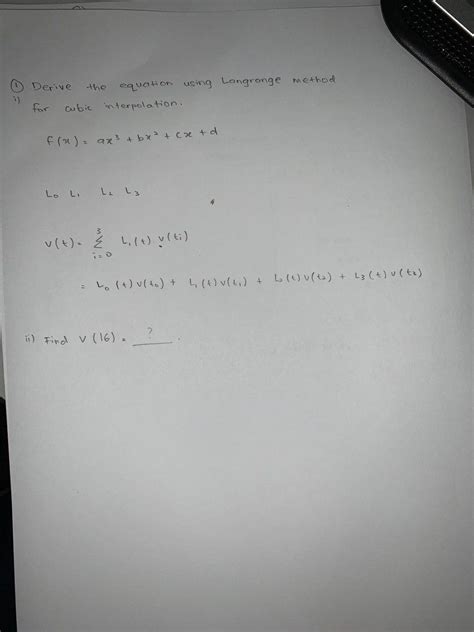 ① Derive the equation using Langrange method
i) for cubic interpolation.
f(x) = ax³ + bx² + cx + d
L₀ L₁ L₂ L₃
v(t) = Σ Lᵢ(t) v(tᵢ)
3
i=0
= L₀(t)v(t₀) + L₁(t)v(t₁) + L₂(t)v(t₂) + L₃(t)v(t₃)
ii) Find v(16) = ?